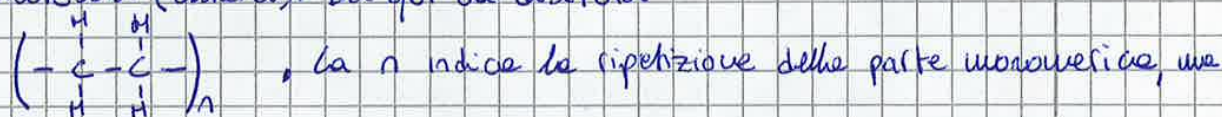 H H
(- C - C -)n , La n indica la ripetizione della parte monomerica, ma
H H